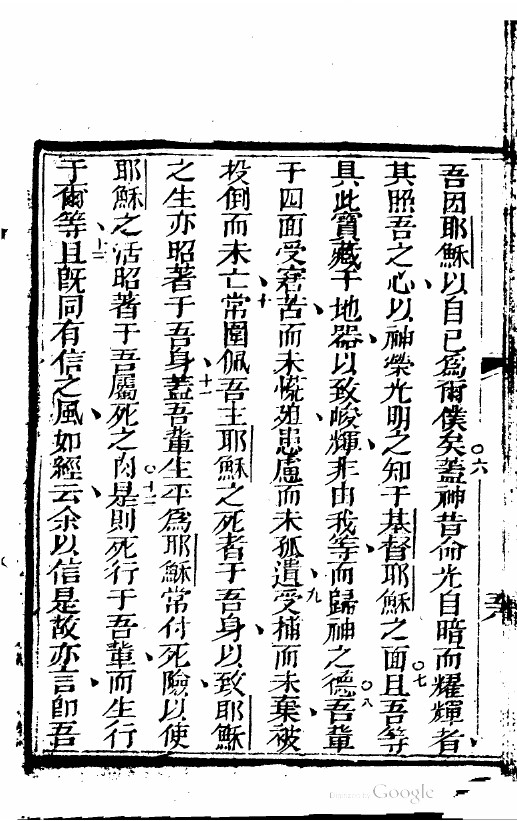 吾因耶穌以自已為爾僕矣○六蓋神昔命光自暗而耀輝者
其照吾之心以神榮光明之知于基督耶穌之面○七且吾等
具此寶藏于地器以致峻輝非由我等而歸神之德○八吾輩
于四面受窘苦而未慌殆患慮而未孤遺九受捕而未棄被
投倒而未亡十常圍佩吾主耶穌之死者于吾身以致耶穌
之生亦昭著于吾身十一蓋吾輩生平為耶穌常付死險以使
耶穌之活昭著于吾屬死之肉○十二是則死行于吾輩而生行
于爾等十三且既同有信之風如經云余以信是故亦言即吾
Digitized by Google